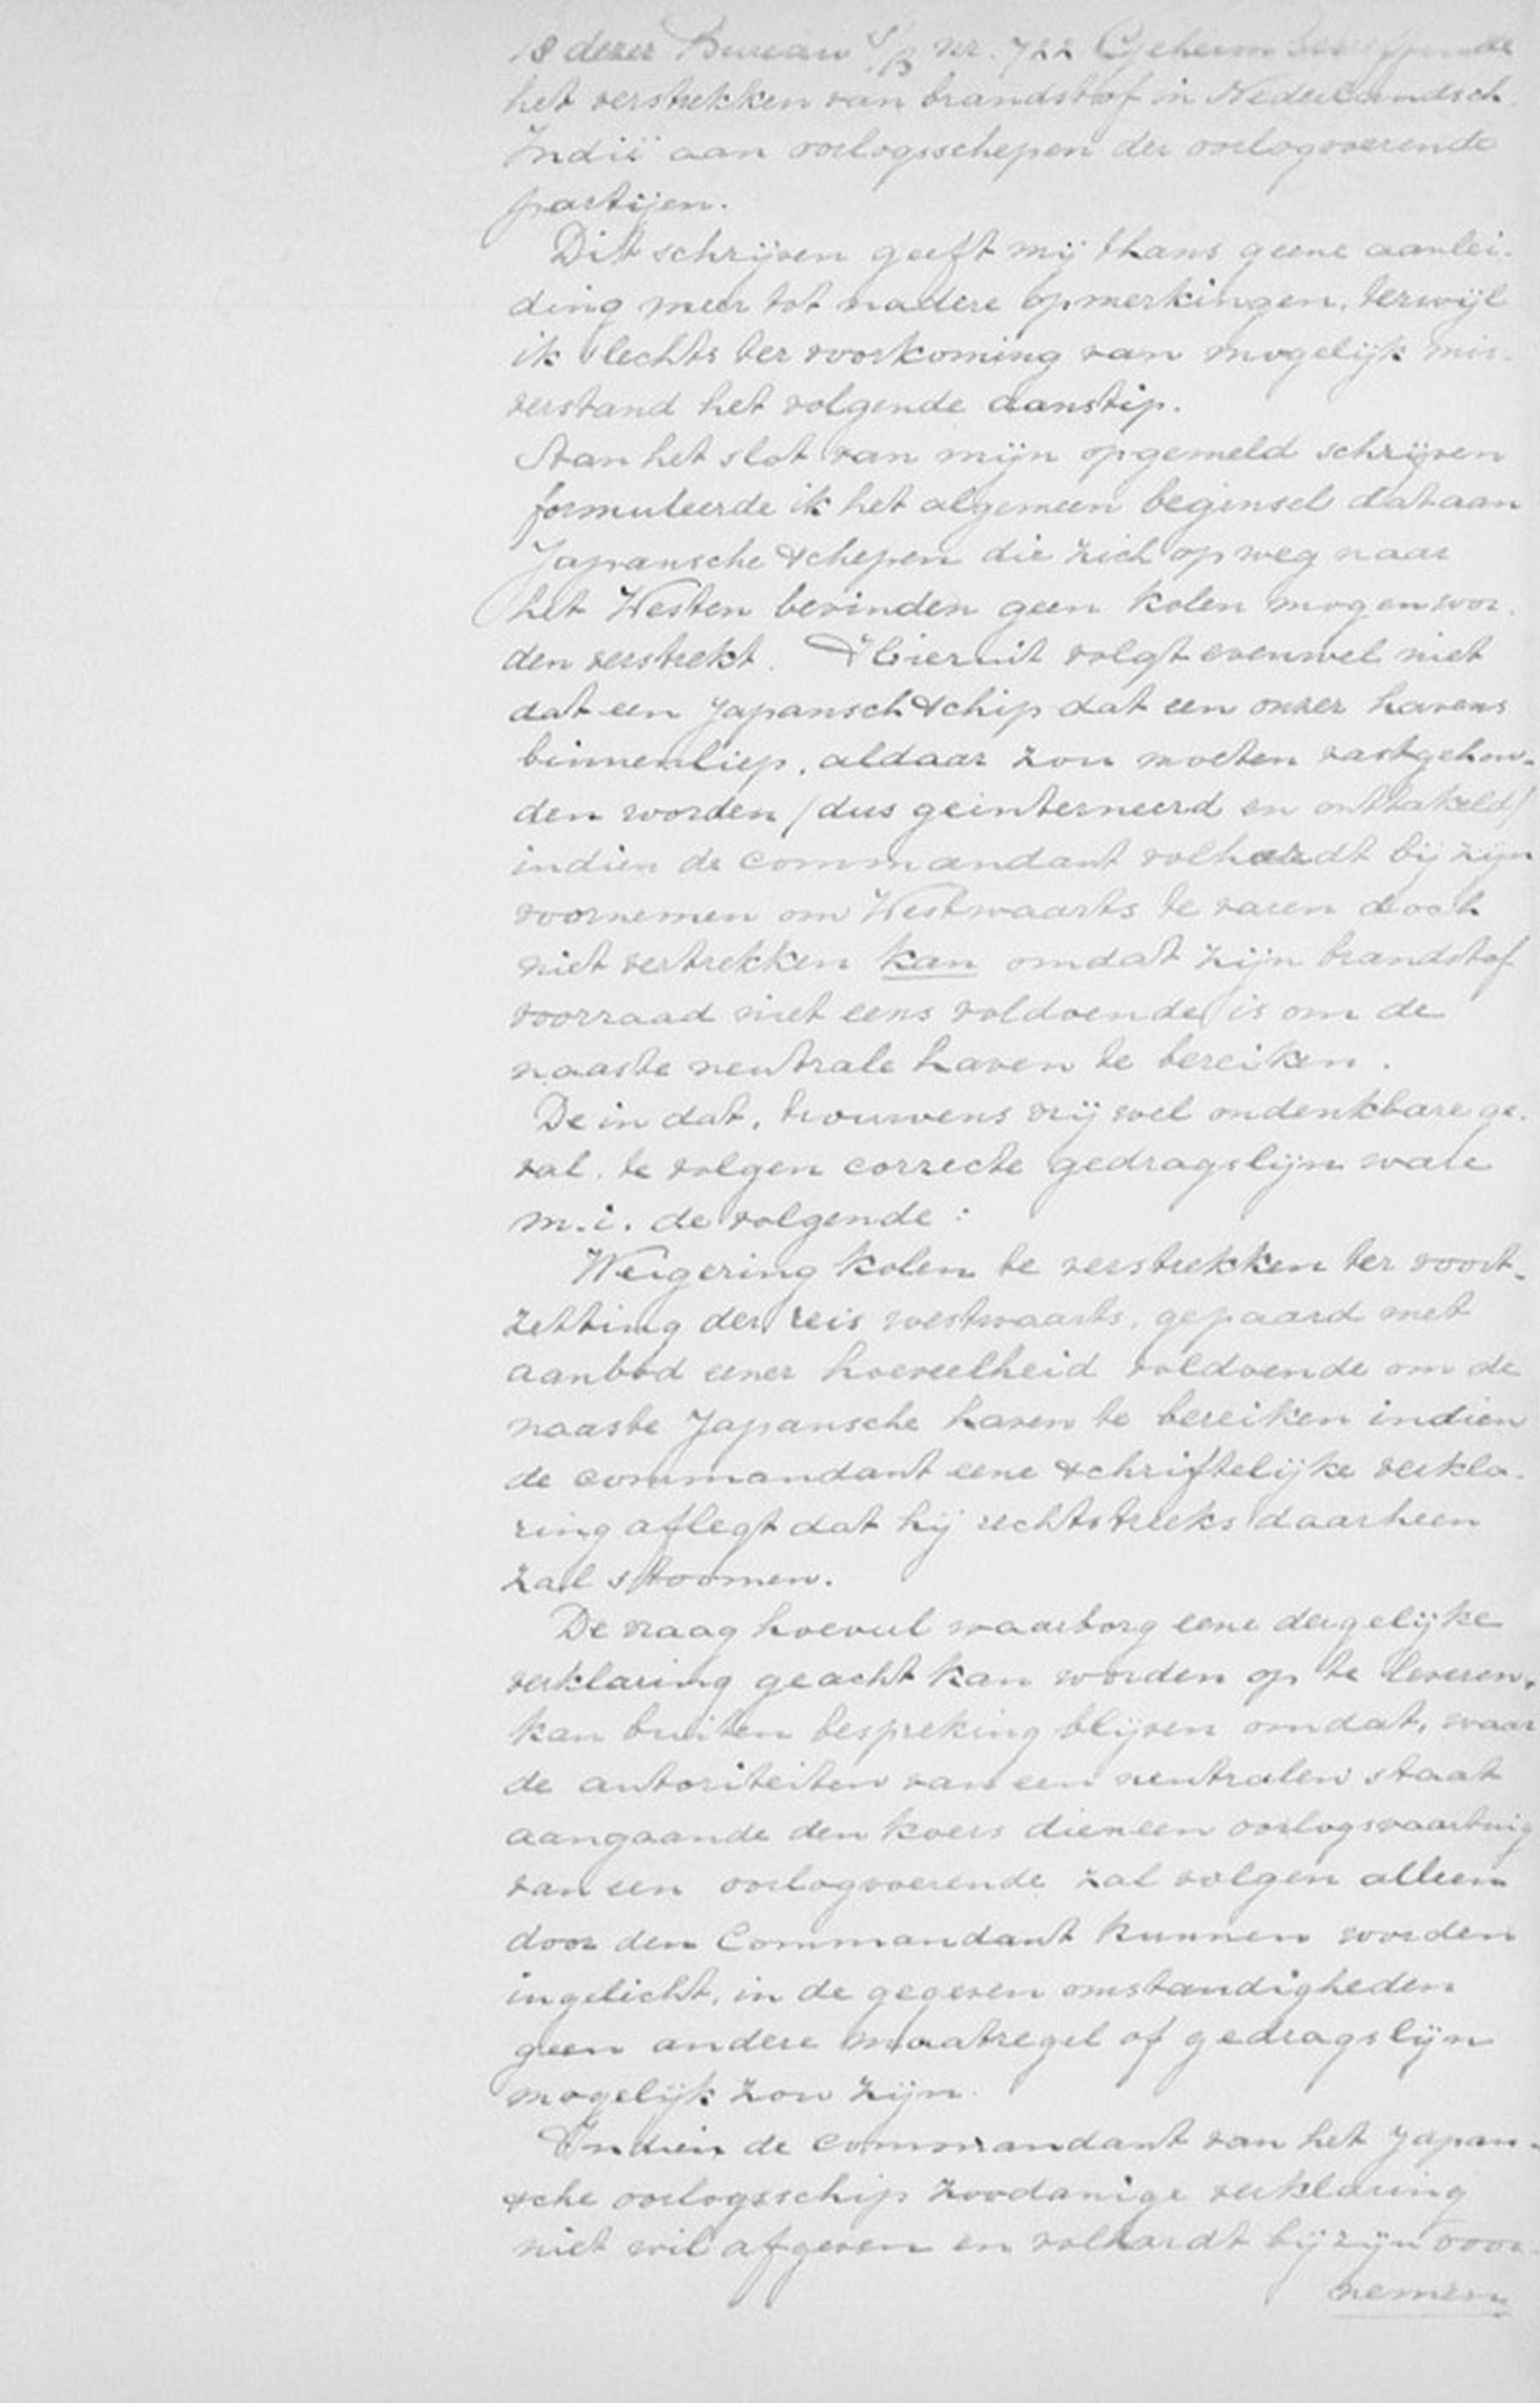 18 dezer Bureau S/B nr. 722 Geheim betreffende
het verstrekken van brandstof in Nederlandsch
Indië aan oorlogsschepen der oorlogvoerende
partijen.
Dit schrijven geeft mij thans geene aanlei-
ding meer tot nadere opmerkingen, terwijl
ik slechts ter voorkoming van mogelijk mis-
verstand het volgende aanstip.
Aan het slot van mijn opgemeld schrijven
formuleerde ik het algemeen beginsel dat aan
Japansche schepen die zich op weg naar
het Westen bevinden geen kolen mogen wor-
den verstrekt. Hieruit volgt evenwel niet
dat een Japansch schip dat een onzer havens
binnenliep, aldaar zou moeten vastgehou-
den worden (dus geinterneerd en onttakeld)
indien de commandant volhardt bij zijn
voornemen om Westwaarts te varen doch
niet vertrekken kan omdat zijn brandstof
voorraad niet eens voldoende is om de
naaste neutrale haven te bereiken.
De in dat, trouwens vrijwel ondenkbare ge-
val, te volgen correcte gedragslijn ware
m.i. de volgende:
Weigering kolen te verstrekken ter voort-
zetting der reis westwaarts, gepaard met
aanbod eener hoeveelheid voldoende om de
naaste Japansche haven te bereiken indien
de commandant eene schriftelijke verkla-
ring aflegt dat hij rechtstreeks daarheen
zal stoomen.
De vraag hoeveel waarborg eene dergelijke
verklaring geacht kan worden op te leveren,
kan buiten bespreking blijven omdat, waar
de autoriteiten van een neutralen staat
aangaande den koers dien een oorlogsvaartuig
van een oorlogvoerende zal volgen alleen
door den Commandant kunnen worden
ingelicht, in de gegeven omstandigheden
geen andere maatregel of gedragslijn
mogelijk zou zijn.
Indien de commandant van het Japan-
sche oorlogsschip zoodanige verklaring
niet wil afgeven en volhardt bij zijn voor-
nemen